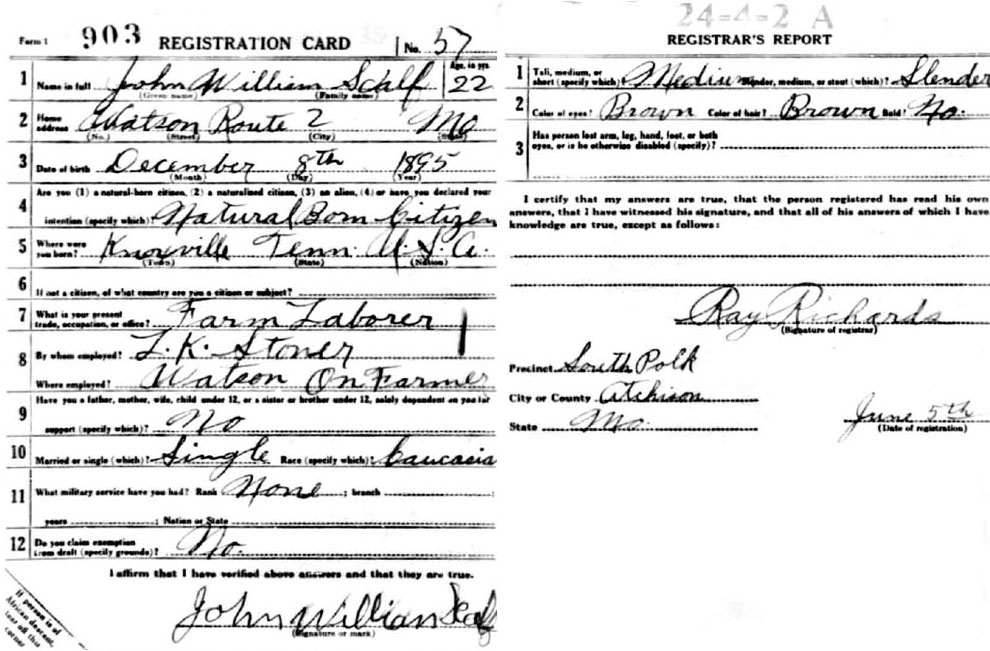 Form 1 903 REGISTRATION CARD No. 57
1 Name in full John William Scalf Age, in yrs. 22
(Given name) (Family name)
2 Home address Watson Route 2 Mo
(No.) (Street) (City) (State)
3 Date of birth December 8th 1895
(Month) (Day) (Year)
Are you (1) a natural-born citizen, (2) a naturalized citizen, (3) an alien, (4) or have you declared your
4 intention (specify which)? Natural Born Citizen
5 Where were you born? Knoxville Tenn. U.S.A.
(Town) (State) (Nation)
6 If not a citizen, of what country are you a citizen or subject?
7 What is your present trade, occupation, or office? Farm Laborer
8 By whom employed? L. K. Stoner
Where employed? Watson On Farmer
Have you a father, mother, wife, child under 12, or a sister or brother under 12, solely dependent on you for
9 support (specify which)? No
10 Married or single (which)? Single Race (specify which)? Caucasia
11 What military service have you had? Rank None ; branch
years ; Nation or State
12 Do you claim exemption from draft (specify grounds)? No.
I affirm that I have verified above answers and that they are true.
John William Scalf
(Signature or mark)
If person is of
African descent,
tear off this
corner
24-4-2 A
REGISTRAR'S REPORT
1 Tall, medium, or short (specify which)? Medium Slender, medium, or stout (which)? Slender
2 Color of eyes? Brown Color of hair? Brown Bald? No.
3 Has person lost arm, leg, hand, foot, or both
eyes, or is he otherwise disabled (specify)?
I certify that my answers are true, that the person registered has read his own
answers, that I have witnessed his signature, and that all of his answers of which I have
knowledge are true, except as follows:
Ray Richards
(Signature of registrar)
Precinct South Polk
City or County Atchison
State Mo. June 5th
(Date of registration)